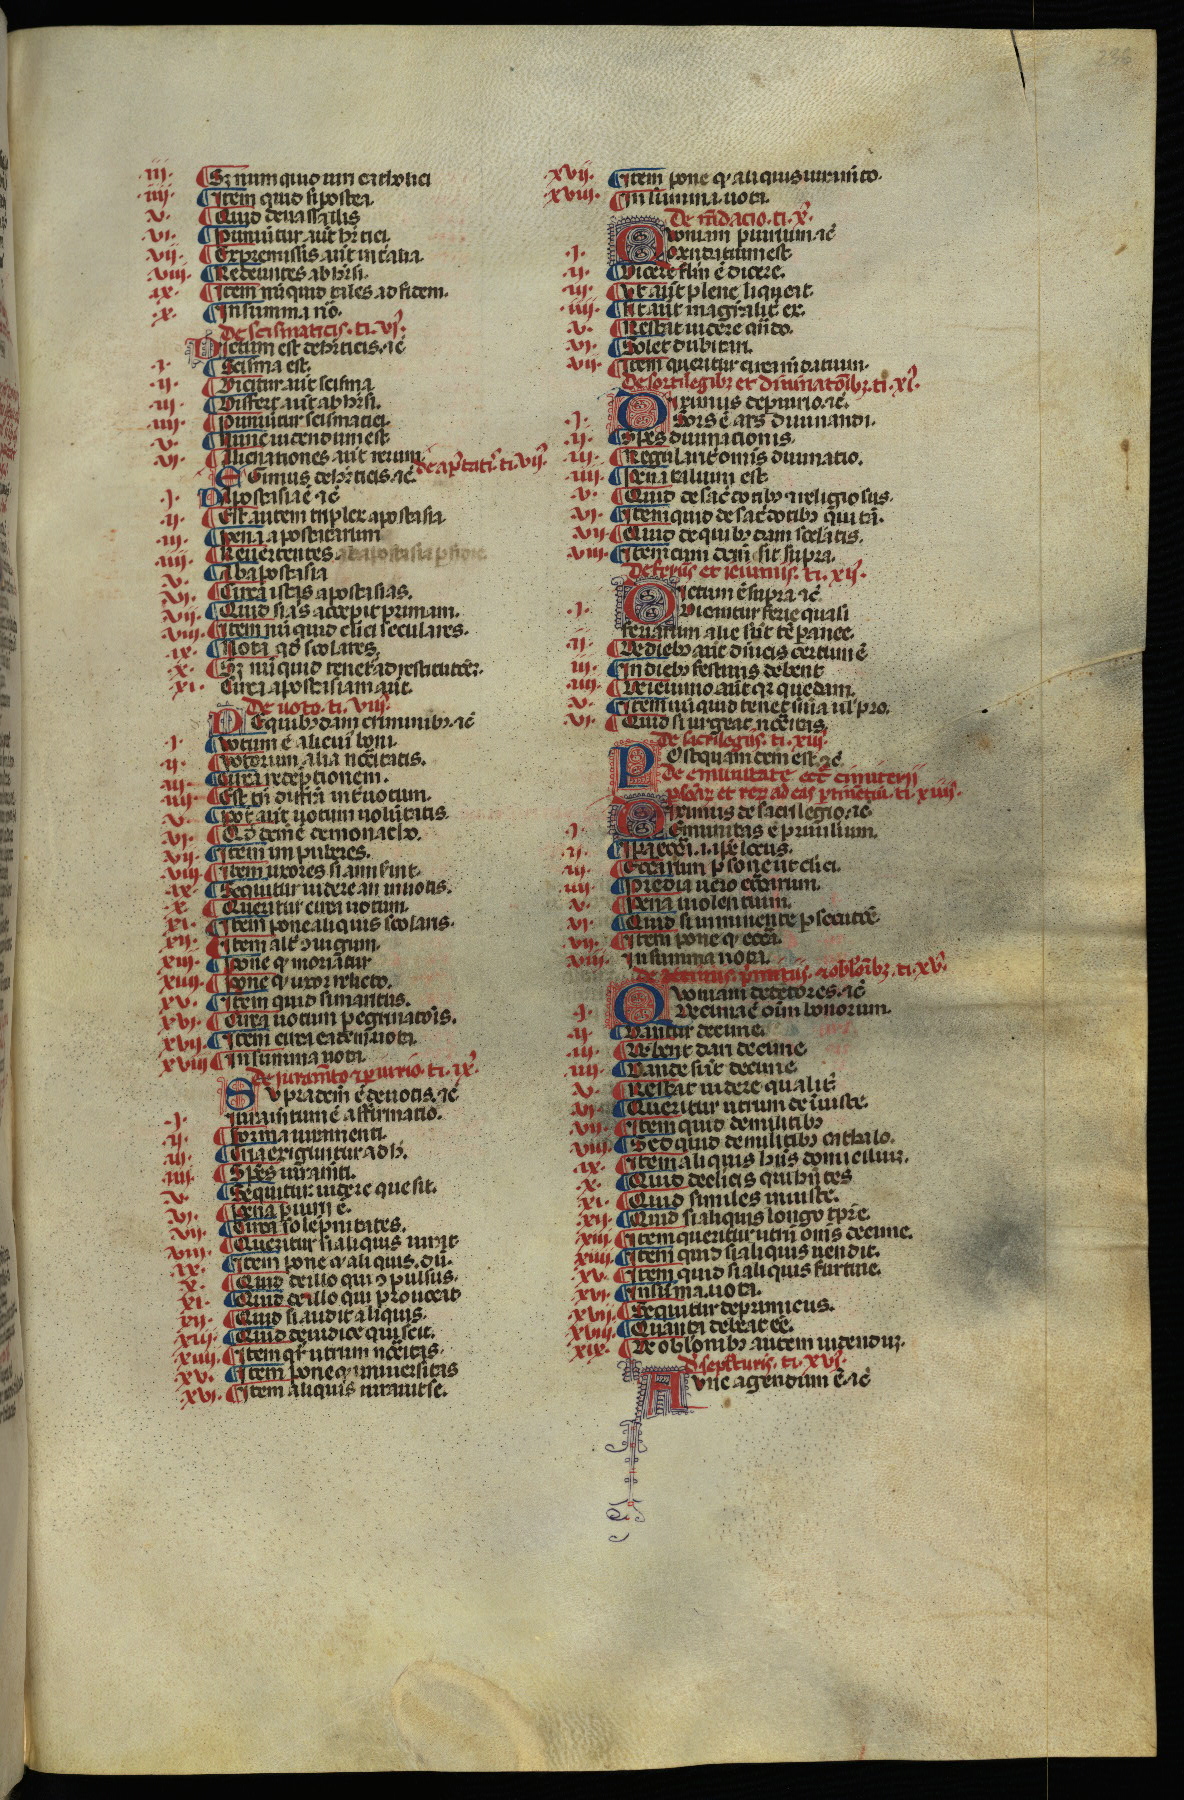 236
iii. Sꝫ nunquid uiri catholici
iiii. Item quid si postea
v. Quid de uassallis
vi. Puniūtur aūt hͬetici
vii. Ex premissis aūt intalia
viii. Redeuntes ab hͬesi.
ix. Item nūquid tales ad fidem.
x. In summa nō.
de scismaticis. ti. vi.
Dictum est de hͬeticis. ⁊c̄
i. Scisma est.
ii. Dicitur aūt scisma
iii. Differt aūt ab hͬesi.
iiii. Puniūtur scismatici
v. Nunc uidendum est
vi. Alienationes aūt rerum
de apͦstatis. ti. vii.
Egimus de hͬeticis. ⁊c̄.
i. Apostasia ē ⁊c̄
ii. Est autem triplex apostasia
iii. Pena apostatarum
iiii. Reuertentes
v. Ab apostasia
vi. Circa istas apostasias.
vii. Quid si as accepit primam.
viii. Item nūquid clici seculares.
ix. Nota qd̄ scolares
x. Sꝫ nūquid tenetᷣ ad restitutōeꝫ.
xi. Circa apostasiam aūt.
De uoto. ti. viii.
De quibꝫdam criminibꝫ. ⁊c̄
i. Votum ē alicui boni.
ii. Votorum alia nēcitatis.
iii. Circa receptionem.
iiii. Est tn̄ differ̄a int̄ uotum.
v. Pot̄ aūt uotum uolūtatis.
vi. Qd̄ dem̄ ē de monacho.
vii. Item impuberes.
viii. Item uxores si aūni sunt.
ix. Sequitur uidere an in uotis.
x. Queritur circa uotum.
xi. Item pone aliquis scolaris.
xii. Item alt̄ ꝯiugum.
xiii. Pone qͥ moriātur
xiiii. Pone qͥ uxor relicto.
xv. Item quid si maritus.
xvi. Circa uotum peregrinatōis.
xvii. Item circa eadem nota
xviii In summa nota.
de iuram̄to ⁊ piurio. ti. ix.
Supra dem̄ ē de uotis. ⁊c̄
i. Iuram̄tum ē affirmatio.
ii. Forma iuramenti.
iii. Tria exiguntur ad h.
iiii. Spēs iuram̄ti.
v. Sequitur uidere que sit.
vi. Pena piurii ē.
vii. Circa solēpnitates.
viii. Queritur si aliquis iurat
ix. Item pone qͥ aliquis. dū.
x. Quid de illo qui ꝯpulsus.
xi. Quid de illo qui prouocat
xii. Quid si audit aliquis.
xiii. Quid de iudice qui scit.
xiiii. Item qͬ utrum nēcitas.
xv. Item pone qͥ uniuersitas
xvi. Item aliquis iurauit se.
xvii. Item pone qͥ aliquis iurauit co.
xviii. In summa nota.
De m̄dacio. ti. x.
Quoniam piurium ⁊c̄
i. Mendatium est
ii. Dicere flm̄ ē dicere.
iii. Vt aūt plene liqueat.
iiii. Fit aūt magralit̄ ex.
v. Restat uidere qn̄do.
vi. Solet dubitari.
vii. Item queritur circa m̄datium.
de sortilegibꝫ et diuinatoībꝫ. ti. xi.
Diximus de piurio. ⁊c̄.
i. Sors ē ars diuinandi.
ii. Spēs diuinacionis.
iii. Regularit̄ omīs diuinatio.
iiii. Pena talium est
v. Quid de sac̄dotibꝫ ⁊ religiosis.
vi. Item quid de sac̄dotibꝫ qͥ tā.
vii Quid de quibꝫdam scelatis.
viii. Item cum dcm̄ sit supra.
de feriis et ieiuniis. ti. xii.
Dictum ē supra ⁊c̄
i. Dicuntur ferie quasi
feriarum alie sūt tēporanee.
ii. De diebꝫ aūt dn̄icis certum ē
iii. In diebꝫ festiuis debent
iiii. De ieiunio aūt qͬ quedam.
v. Item nūquid tenet sn̄ia ul̄ pro.
vi. Quid si urgeat nēcitas.
De sacrilegiis. ti. xiii.
Postquam dcm̄ est. ⁊c̄
De emunitate ecc̄ cimiterii
et reꝫ ad eas ꝑtinētiū. ti. xiiii.
Diximus de sacrilegio. ⁊c̄
i. Emunitas ē priuilium.
ii. Ipa ecc̄a. ⁊. ipē locus.
iii. Ecc̄arum psone ut clici.
iiii. Predia uero ecc̄arum.
v. Pena uiolentium.
vi. Quid si imminente psecutōe.
vii. Item pone qͥ ecc̄a.
viii. In summa nota.
de decimis. primitiis. ⁊ oblōibꝫ. ti. xv.
Quoniam detētores. ⁊c̄
i. Decima ē oīm bonorum.
ii. Dantur decime.
iii. Debent dari decime
iiii. Vande sūt decime
v. Restat uidere qualit̄
vi. Queritur utrum de iniuste.
vii. Item quid de militibꝫ
viii. Sed quid de militibꝫ cathalo.
ix. Item aliquis hn̄s domicilium.
x. Quid de clicis qui hn̄t es
xi. Quid si miles iniuste.
xii. Quid si aliquis longo tp̄re.
xiii Item queritur utrū omīs decime.
xiiii. Item quid si aliquis uendit.
xv. Item quid si aliquis furtiue.
xvi. In suma. nota.
xvii. Sequitur de primiciis.
xviii. Quanta debeat eē.
xix. De oblōnibꝫ autem uidenduꝫ.
d sepl̄turis. ti. xvi.
Nunc agendum ē. ⁊c̄